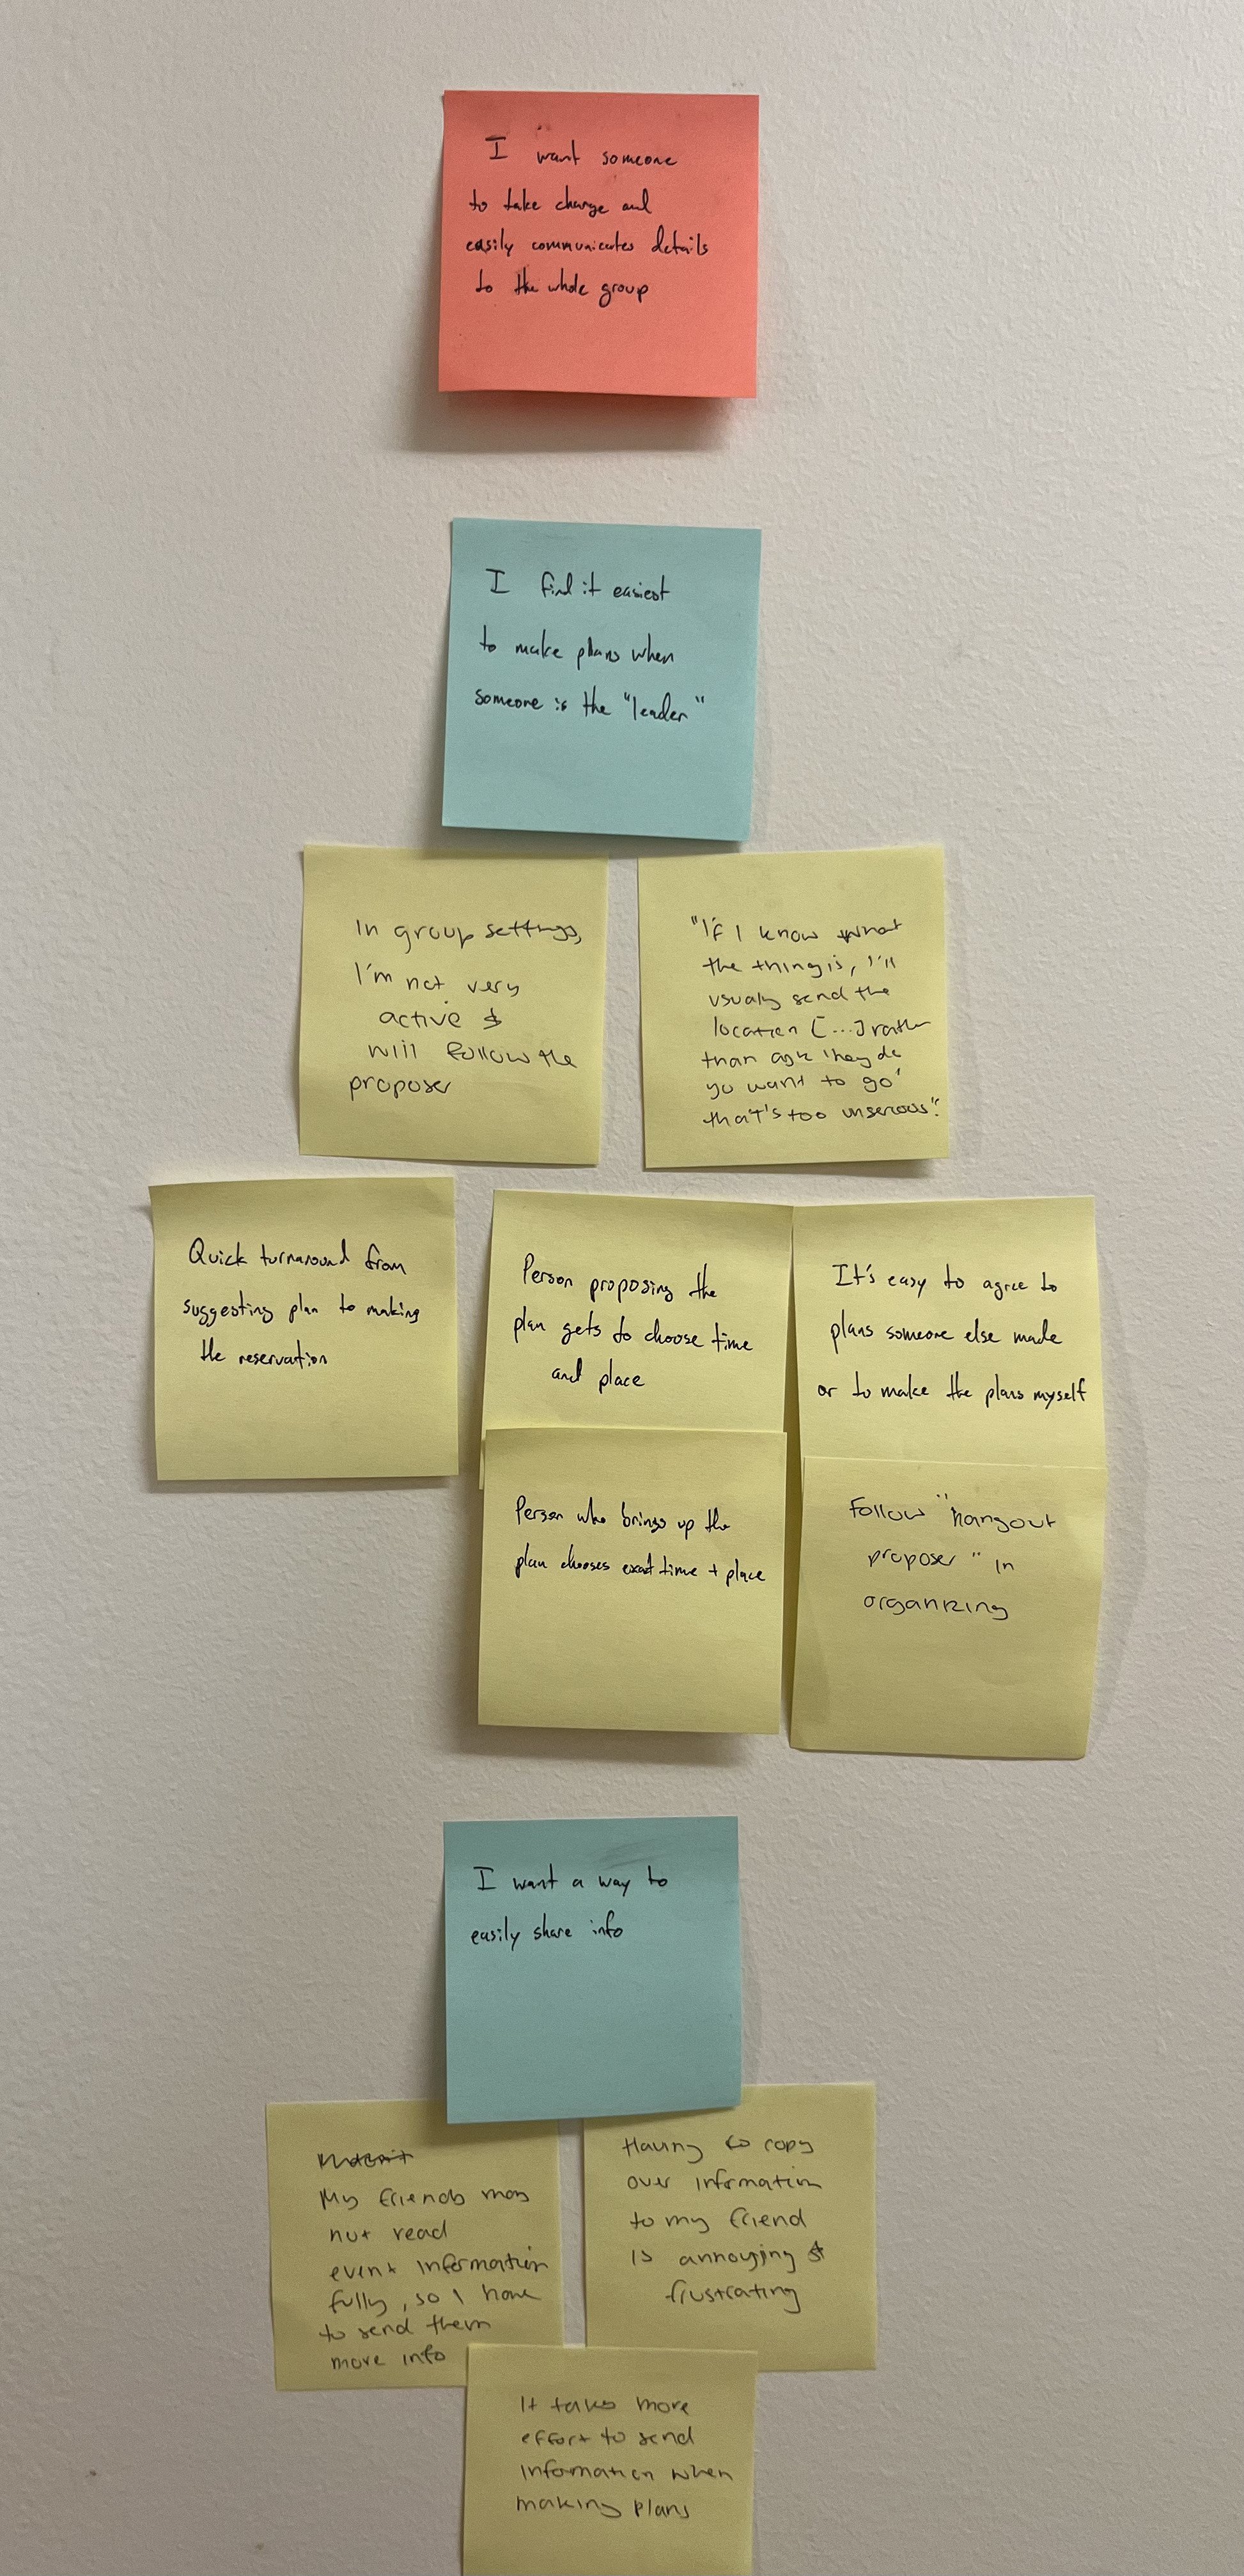 I want someone
to take charge and
easily communicates details
to the whole group
I find it easiest
to make plans when
someone is the "leader"
In group settings,
I'm not very
active &
will follow the
proposer
"If I know what
the thing is, I'll
usually send the
location [...] rather
than ask 'hey do
you want to go'
that's too unserious".
Quick turnaround from
suggesting plan to making
the reservation
Person proposing the
plan gets to choose time
and place
It's easy to agree to
plans someone else made
or to make the plans myself
Person who brings up the
plan chooses exact time + place
Follow "hangout
proposer" in
organizing
I want a way to
easily share info
My friends may
not read
event information
fully, so I have
to send them
more info
Having to copy
over information
to my friend
is annoying &
frustrating
It takes more
effort to send
information when
making plans